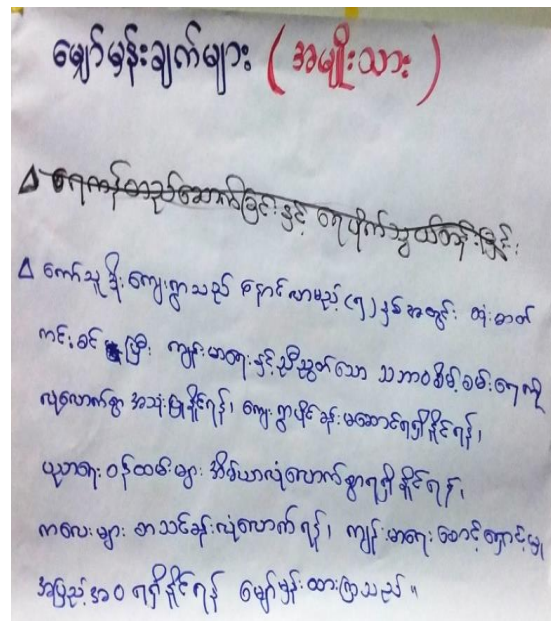 မျှော်မှန်းချက်များ (အမျိုးသား)
Δ ရေကန်တည်ဆောက်ခြင်းနှင့် ရေပိုက်သွယ်တန်းခြင်း
Δ ကော်သူဒိုးကျေးရွာသည် နောင်လာမည့် (၅) နှစ်အတွင်း ထုံးဓာတ်
ကင်းစင်ပြီး ကျန်းမာရေးနှင့်ညီညွတ်သော သဘာဝစိမ့်စမ်းရေကို
လုံလောက်စွာ အသုံးပြုနိုင်ရန်၊ ကျေးရွာပိုင်ခန်းမဆောင်ရရှိနိုင်ရန်၊
ပညာရေးဝန်ထမ်းများ အိမ်ယာလုံလောက်စွာရရှိနိုင်ရန်၊
ကလေးများ စာသင်ခန်းလုံလောက်ရန်၊ ကျန်းမာရေးစောင့်ရှောက်မှု
အပြည့်အဝ ရရှိနိုင်ရန် မျှော်မှန်းထားကြသည်။